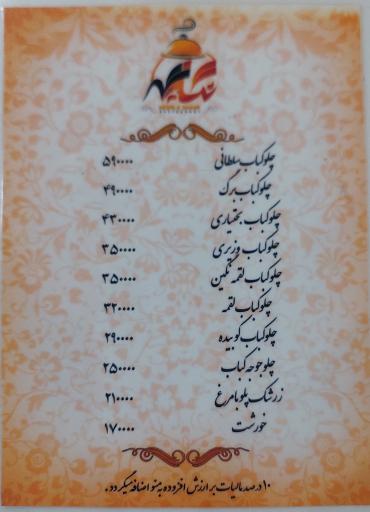 نگین
چلوکباب سلطانی ۵۹۰۰۰۰
چلوکباب برگ ۴۹۰۰۰۰
چلوکباب بختیاری ۴۳۰۰۰۰
چلوکباب وزیری ۳۵۰۰۰۰
چلوکباب لقمه نگین ۳۵۰۰۰۰
چلوکباب لقمه ۳۲۰۰۰۰
چلوکباب کوبیده ۲۹۰۰۰۰
چلو جوجه کباب ۲۵۰۰۰۰
زرشک پلو با مرغ ۲۱۰۰۰۰
خورشت ۱۷۰۰۰۰
۱۰ درصد مالیات بر ارزش افزوده به منو اضافه میگردد.